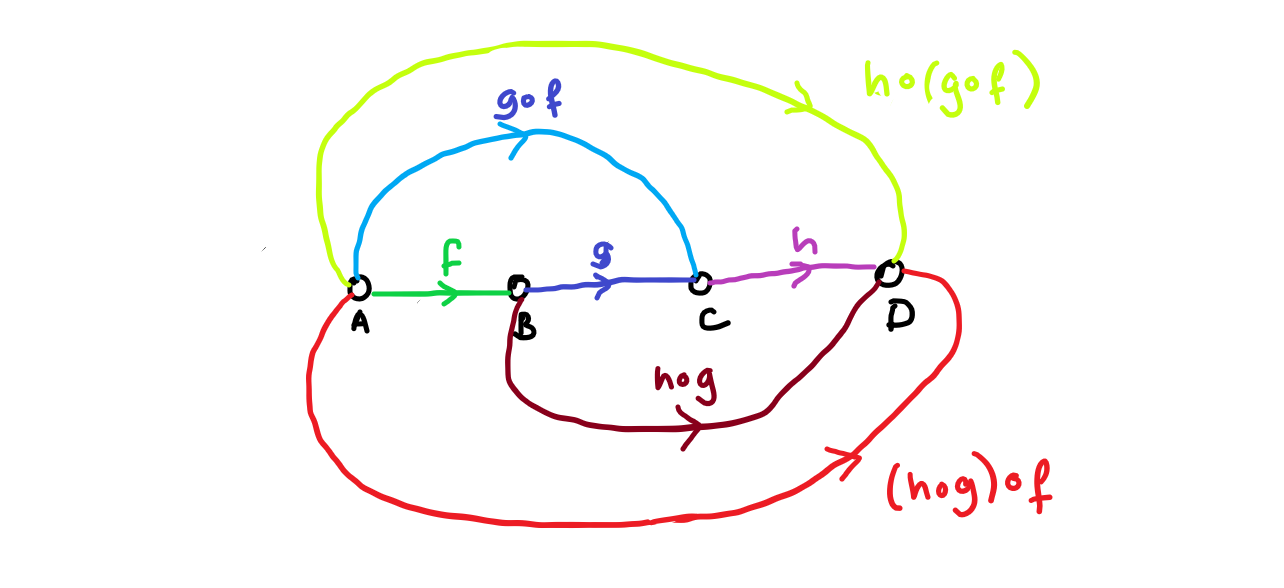 h∘(g∘f)
g∘f
f
g
h
A
B
C
D
h∘g
(h∘g)∘f